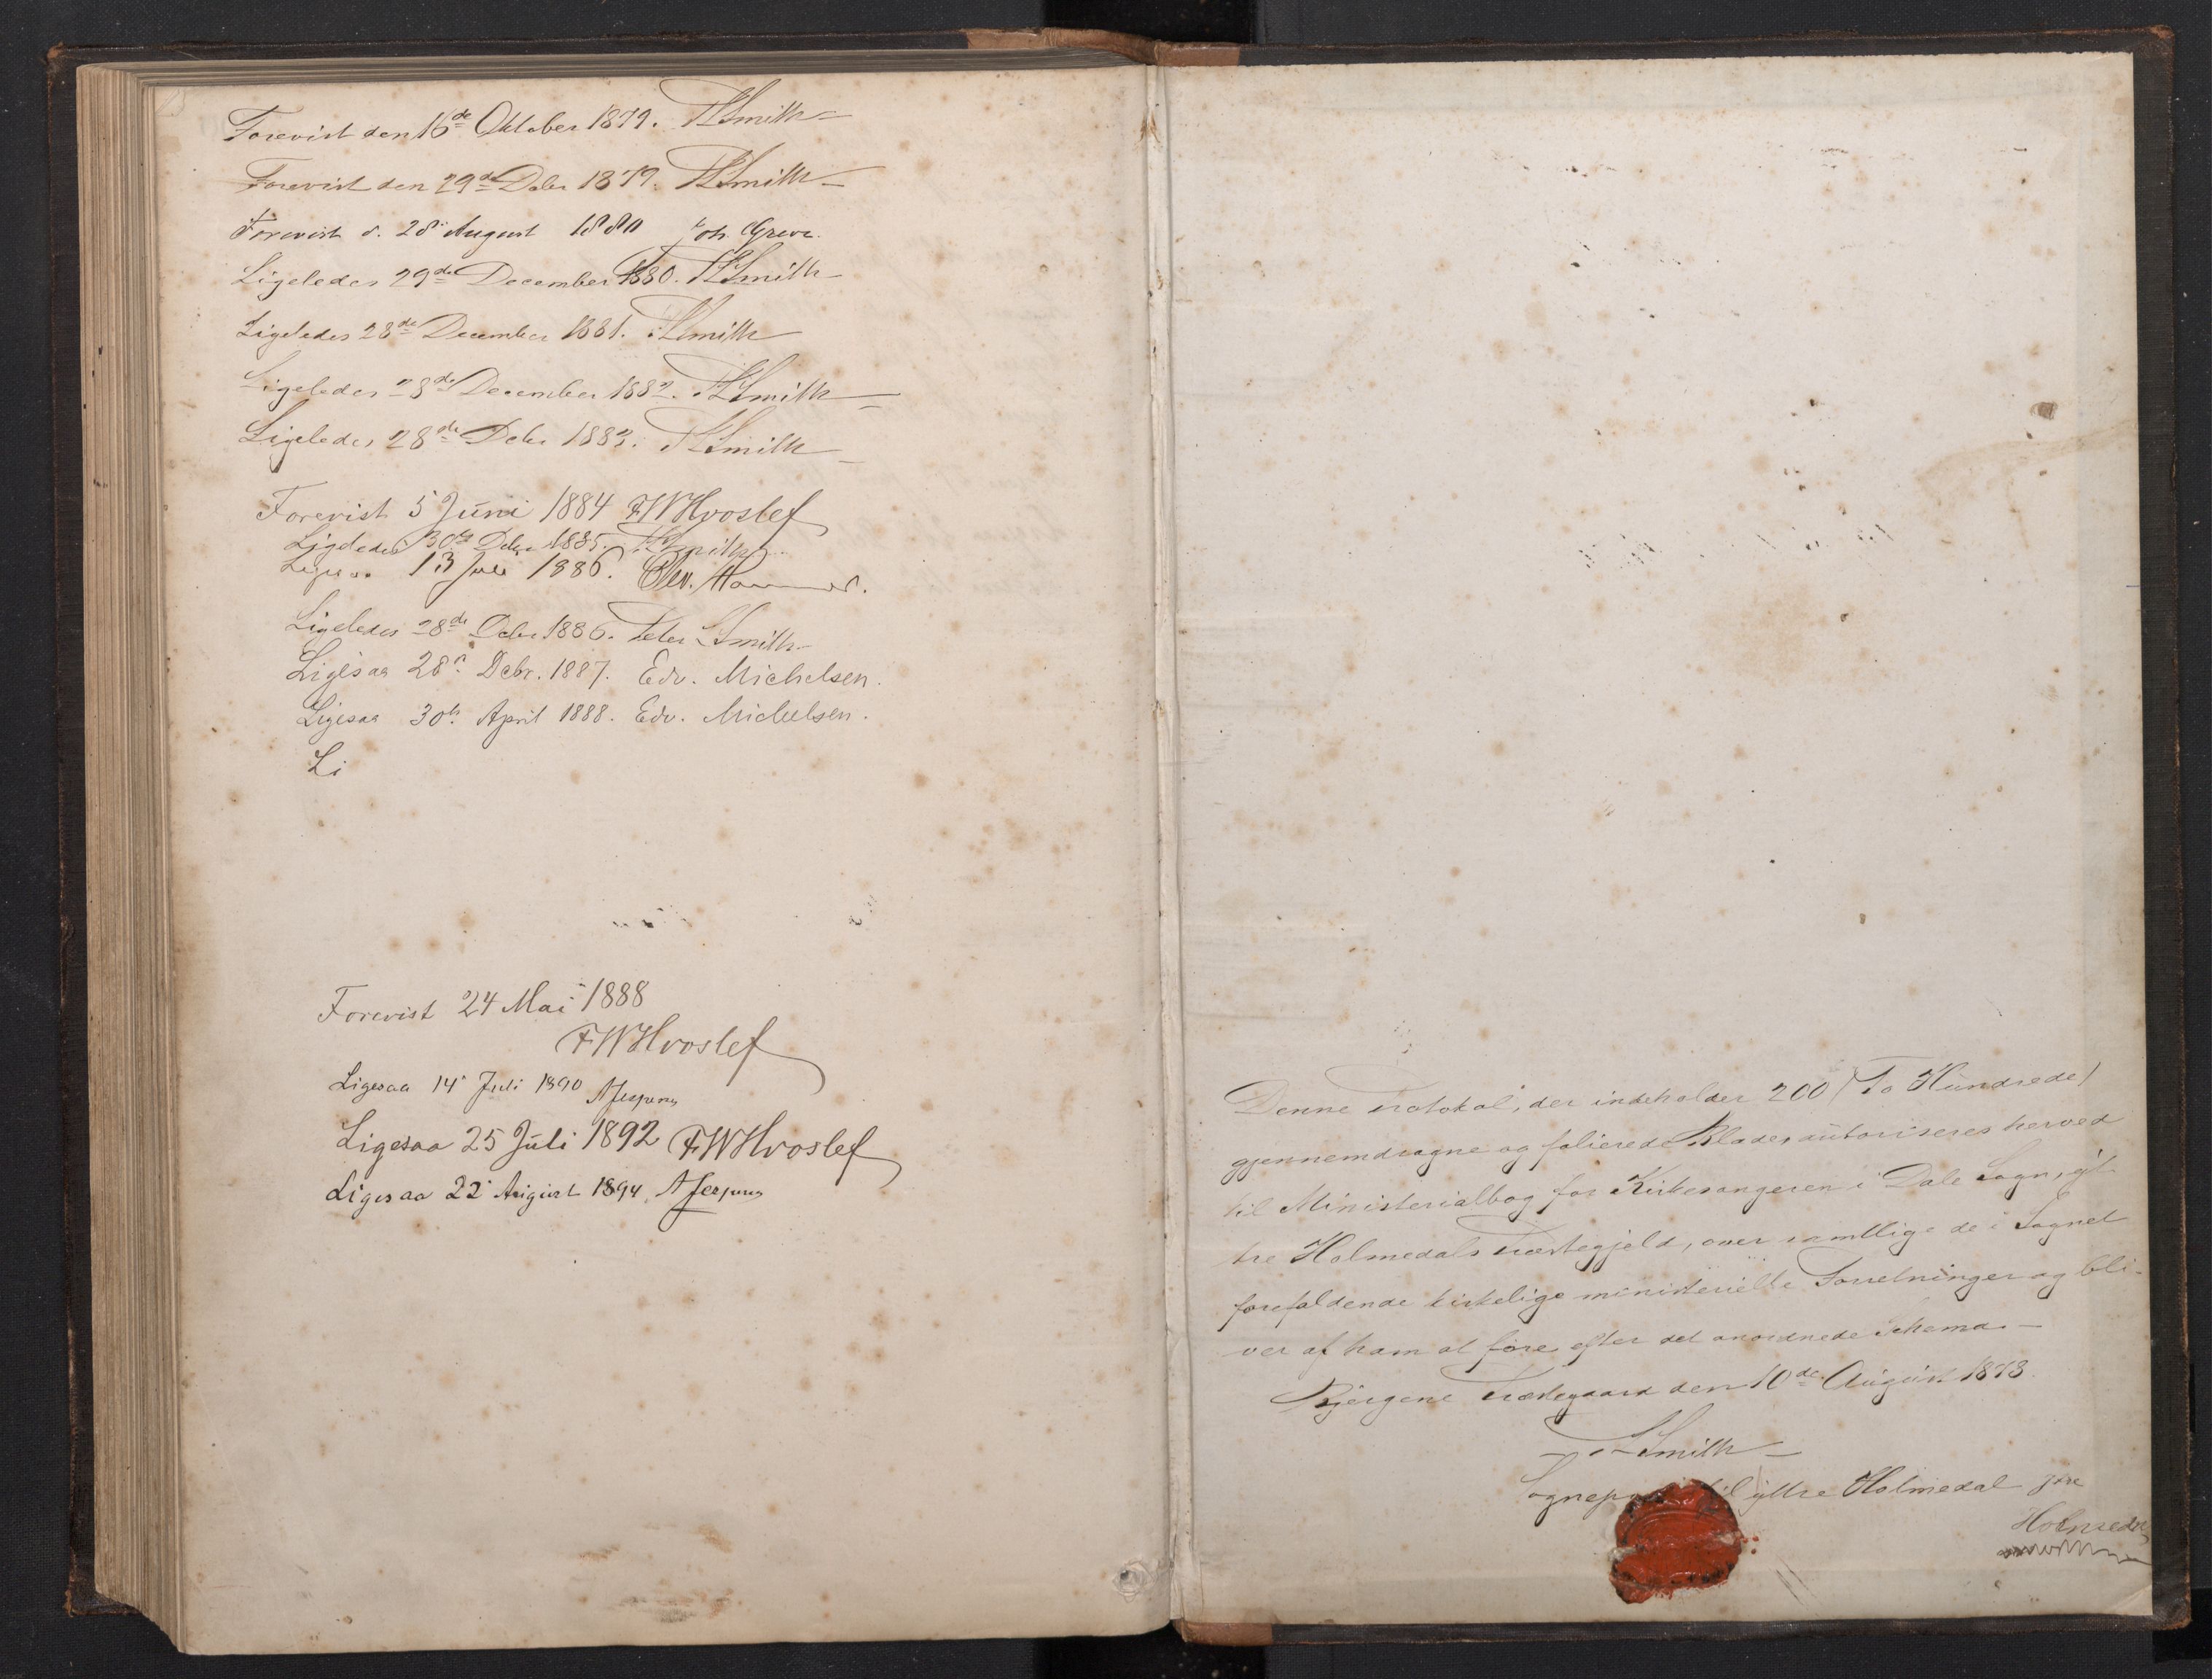 Forevist den 16de Oktober 1879. PSSmith
Forevist den 29de Debr 1879. PSSmith
Forevist d. 28 August 1880 Joh. Greve.
Ligeledes 29de December 1880. PSSmith
Ligeledes 28de December 1881. PSSmith
Ligeledes 28de December 1882. PSSmith
Ligeledes 28de Debr 1883. PSSmith
Forevist 5 Juni 1884 FWHvoslef
Ligeledes 30de Debr 1885. PSSmith
Ligesaa 13 Juli 1886.
Ligeledes 28de Debr 1886. Peter SSmith
Ligesaa 28de Debr. 1887. Edv. Michelsen.
Ligesaa 30te April 1888. Edv. Michelsen.
Li
Forevist 24 Mai 1888
FWHvoslef
Ligesaa 14 Juli 1890 AJespersen
Ligesaa 25 Juli 1892 FWHvoslef
Ligesaa 22 August 1894, AJespersen
Denne Protokol, der indeholder 200 (To Hundrede)
gjennemdragne og folierede Blader autoriseres herved
til Ministerialbog for Kirkesangeren i Dale Sogn, yt-
tre Holmedals Præstegjeld, over samtlige de i Sognet
forefaldende kirkelige ministerielle Forretninger og bli-
ver af ham at føre efter det anordnede Schema. —
Bjergene Præstegaard den 10de August 1878.
PSSmith
Sognepræst til yttre Holmedal
Holmedal